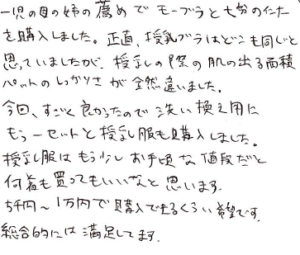 一児の母の姉の薦めでモーブラと七分のインナー
を購入しました。正直、授乳ブラはどこも同じと
思っていましたが、授乳の際の肌の出る面積
パットのしっかりさが全然違いました。
今回、すごく良かったので洗い換え用に
もう一セットと授乳服も購入しました。
授乳服はもう少しお手頃な値段だと
何着も買ってもいいなと思います。
5千円～1万円で購入できるくらい希望です。
総合的には満足してます。